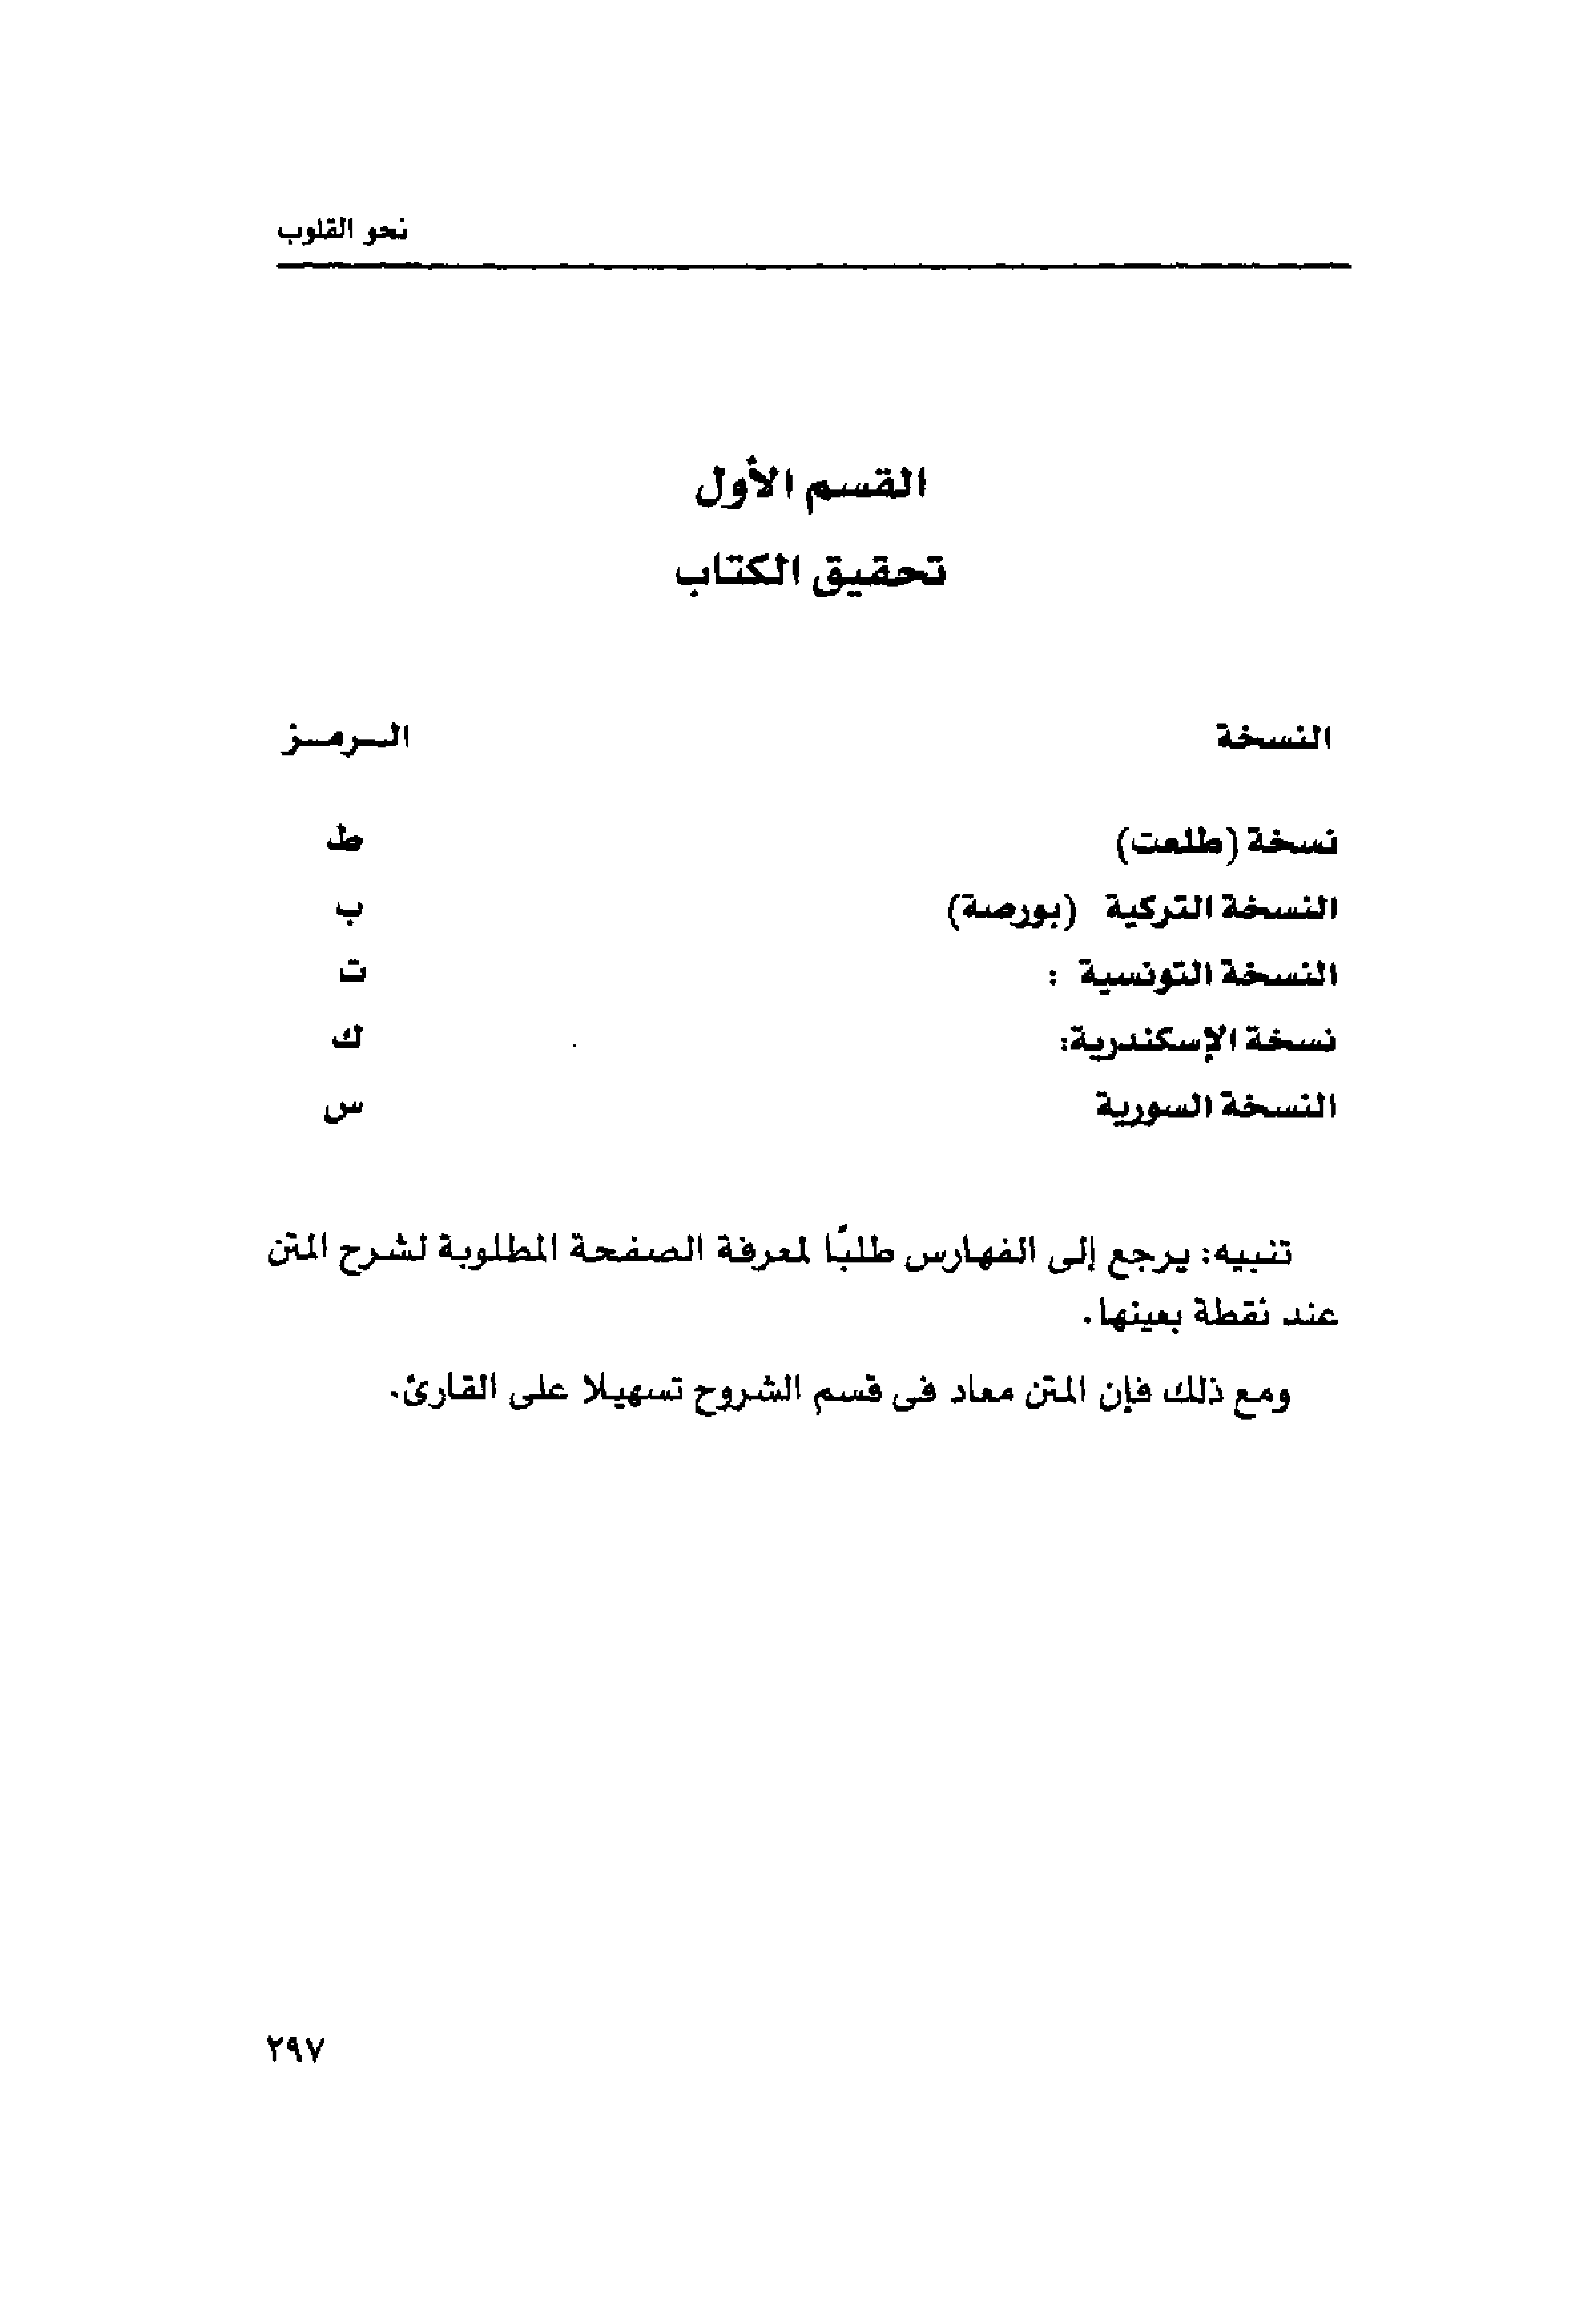 نحو القلوب
القسم الأول
تحقيق الكتاب
النسخة الـرمـز
نسخة (طلعت) ط
النسخة التركية (بورصة) ب
النسخة التونسية : ت
نسخة الإسكندرية: ك
النسخة السورية س
تنبيه: يرجع إلى الفهارس طلبًا لمعرفة الصفحة المطلوبة لشرح المتن
عند نقطة بعينها.
ومع ذلك فإن المتن معاد فى قسم الشروح تسهيلا على القارئ.
٢٩٧